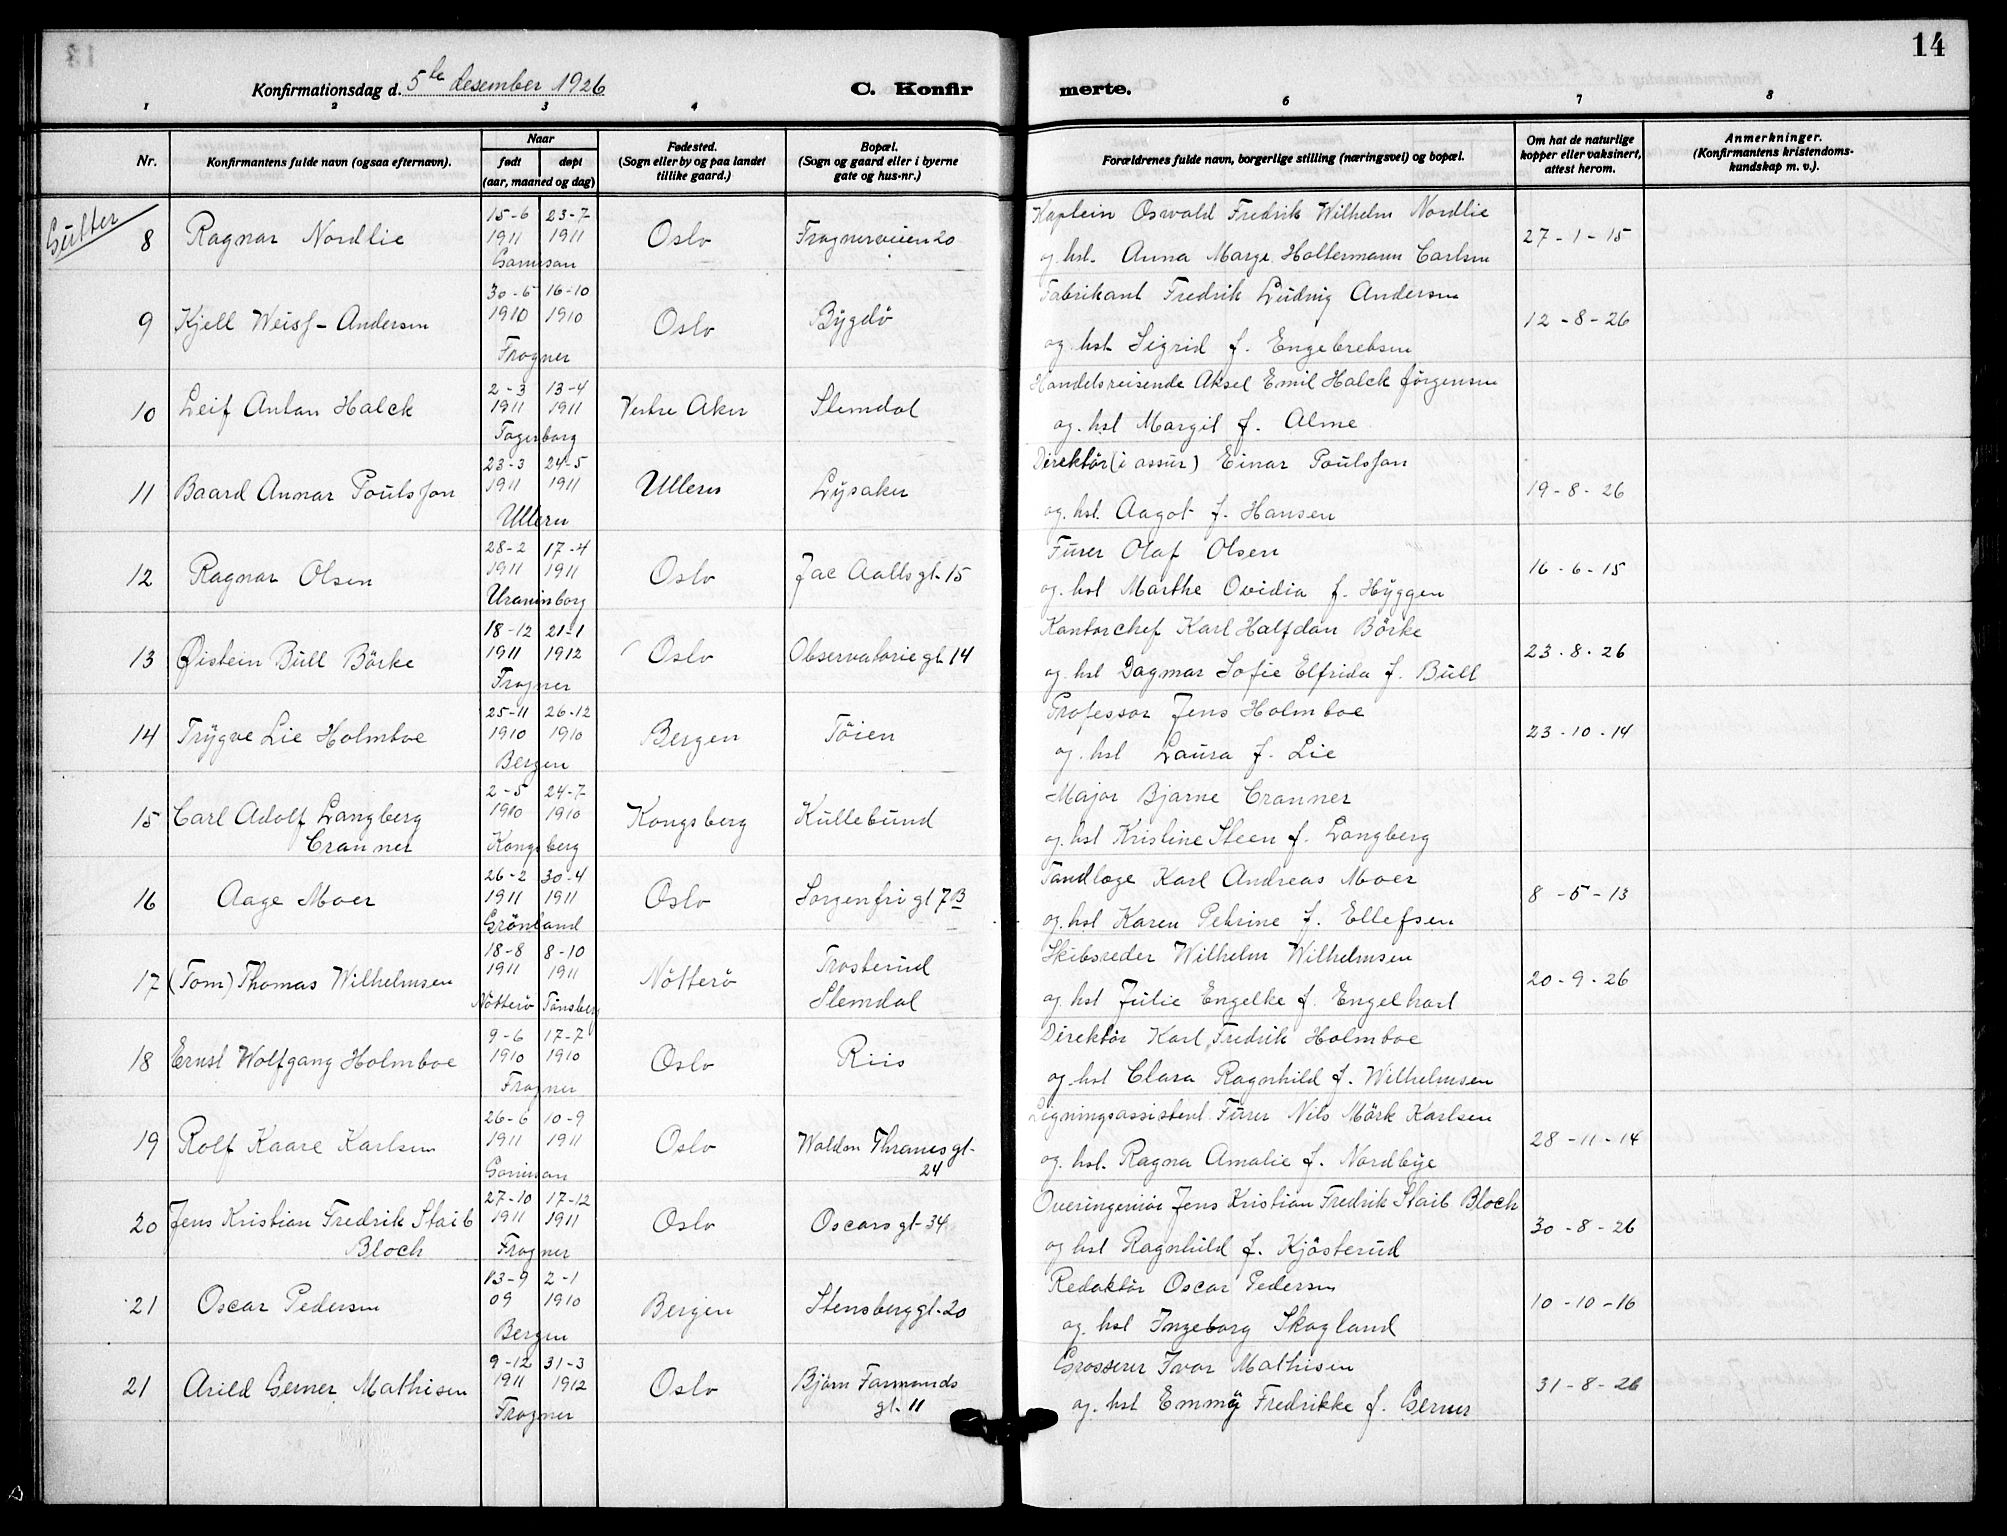 14
Konfirmationsdag d. 5te desember 1926
C. Konfirmerte.
1 2 3 4 5 6 7 8
Nr.
Konfirmantens fulde navn (ogsaa efternavn).
Naar
født døpt
(aar, maaned og dag)
Fødested.
(Sogn eller by og paa landet
tillike gaard.)
Bopæl.
(Sogn og gaard eller i byerne
gate og hus-nr.)
Forældrenes fulde navn, borgerlige stilling (næringsvei) og bopæl.
Om hat de naturlige
kopper eller vaksinert,
attest herom.
Anmerkninger.
(Konfirmantens kristendoms-
kundskap m. v.).
Gutter
15-6 23-7 Kaptein Oswald Fredrik Wilhelm Nordlie
8 Ragnar Nordlie 1911 1911 Oslo Frognerveien 20 27-1-15
Garnison og hst. Anna Marge Holtermann Carlsen
30-6 16-10 Fabrikant Fredrik Ludvig Andersen
9 Kjell Weiss-Andersen 1910 1910 Oslo Bygdö 12-8-26
Frogner og hst Sigrid f. Engebretsen
2-3 13-4 Handelsreisende Aksel Emil Halck Jörgensen
10 Leif Anton Halck 1911 1911 Vestre Aker Slemdal
Fagerborg og hst Margit f. Alme
23-3 24-5 Direktör (i assur) Einar Poulsson
11 Baard Annar Poulsson 1911 1911 Ullern Lysaker 19-8-26
Ullern og hst. Aagot f. Hansen
28-2 17-4 Furer Olaf Olsen
12 Ragnar Olsen 1911 1911 Oslo Jac Aallsgt 15 16-6-15
Uranienborg og hst Marthe Ovidia f. Hyggen
18-12 21-1 Kontorchef Karl Halfdan Börke
13 Øistein Bull Börke 1911 1912 Oslo Observatorie gt 14 23-8-26
Frogner og hst Dagmar Sofie Elfrida f. Bull
25-11 26-12 Professor Jens Holmboe
14 Trygve Lie Holmboe 1910 1910 Bergen Töien 23-10-14
Bergen og hst Laura f. Lie
2-5 24-7 Major Bjarne Cranner
15 Carl Adolf Langberg 1910 1910 Kongsberg Kullebund
Cranner Kongsberg og hst Kristine Steen f. Langberg
26-2 30-4 Tandlæge Karl Andreas Moer
16 Aage Moer 1911 1911 Oslo Sorgenfri gt 7B 8-5-13
Grönland og hst Karen Petrine f. Ellefsen
18-8 8-10 Skibsreder Wilhelm Wilhelmsen
17 (Tom) Thomas Wilhelmsen 1911 1911 Nötterö Trosterud 20-9-26
Nötterö Tönsberg Slemdal og hst Julie Engelke f. Engelhart
9-6 17-7 Direktör Karl Fredrik Holmboe
18 Ernst Wolfgang Holmboe 1910 1910 Oslo Riis
Frogner og hst Clara Ragnhild f. Wilhelmsen
26-6 10-9 Ligningsassistent Furer Nils Mörk Karlsen
19 Rolf Kaare Karlsen 1911 1911 Oslo Waldem Thranes gt- 28-11-14
24
Garnison og hst. Ragna Amalie f. Nordbye
27-10 17-12 Overingeniör Jens Kristian Fredrik Staib Bloch
20 Jens Kristian Fredrik Staib 1911 1911 Oslo Oscars gt-34 30-8-26
Bloch Frogner og hst Ragnhild f. Kjösterud
13-9 2-1 Redaktör Oscar Pedersen
21 Oscar Pedersen 09 1910 Bergen Stensberggt-20 10-10-16
Bergen og hst Ingeborg Skogland
9-12 31-3 Grosserer Ivar Mathisen
21 Arild Gerner Mathisen 1911 1912 Oslo Björn Farmands 31-8-26
gt-11
Frogner og hst Emmy Fredrikke f. Gerner